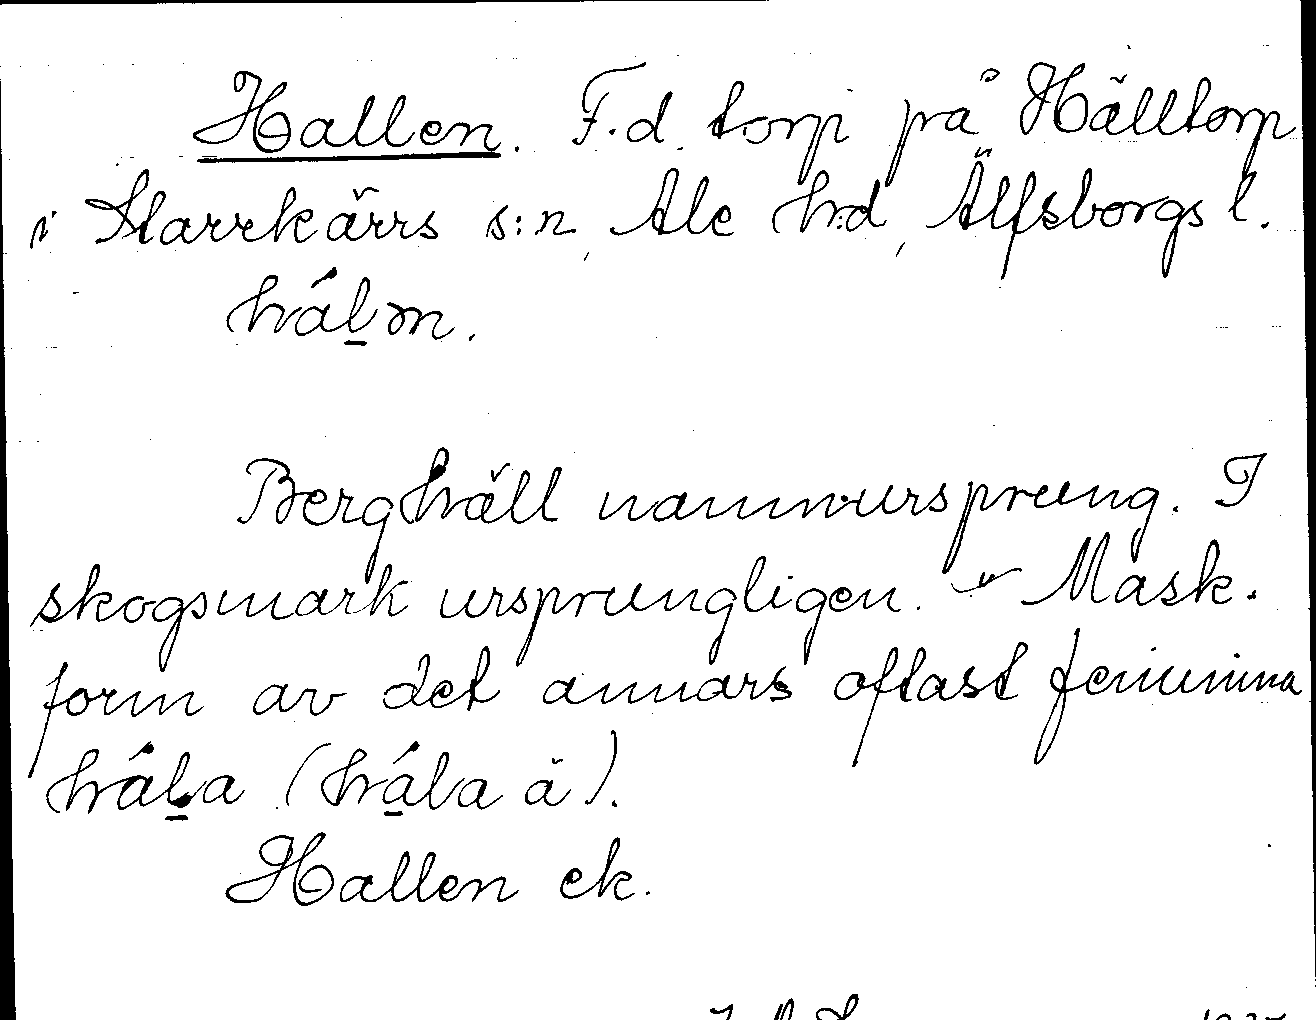 Hallen. F.d. torp på Hälltorp
i Starrkärrs s:n, Ale h:d, Älfsborgs l.
háḻm.
Berghäll namnursprung. I
skogsmark ursprungligen. – Mask.
form av det annars oftast feminina
háḻa (há̱la ä).
Hallen ek.